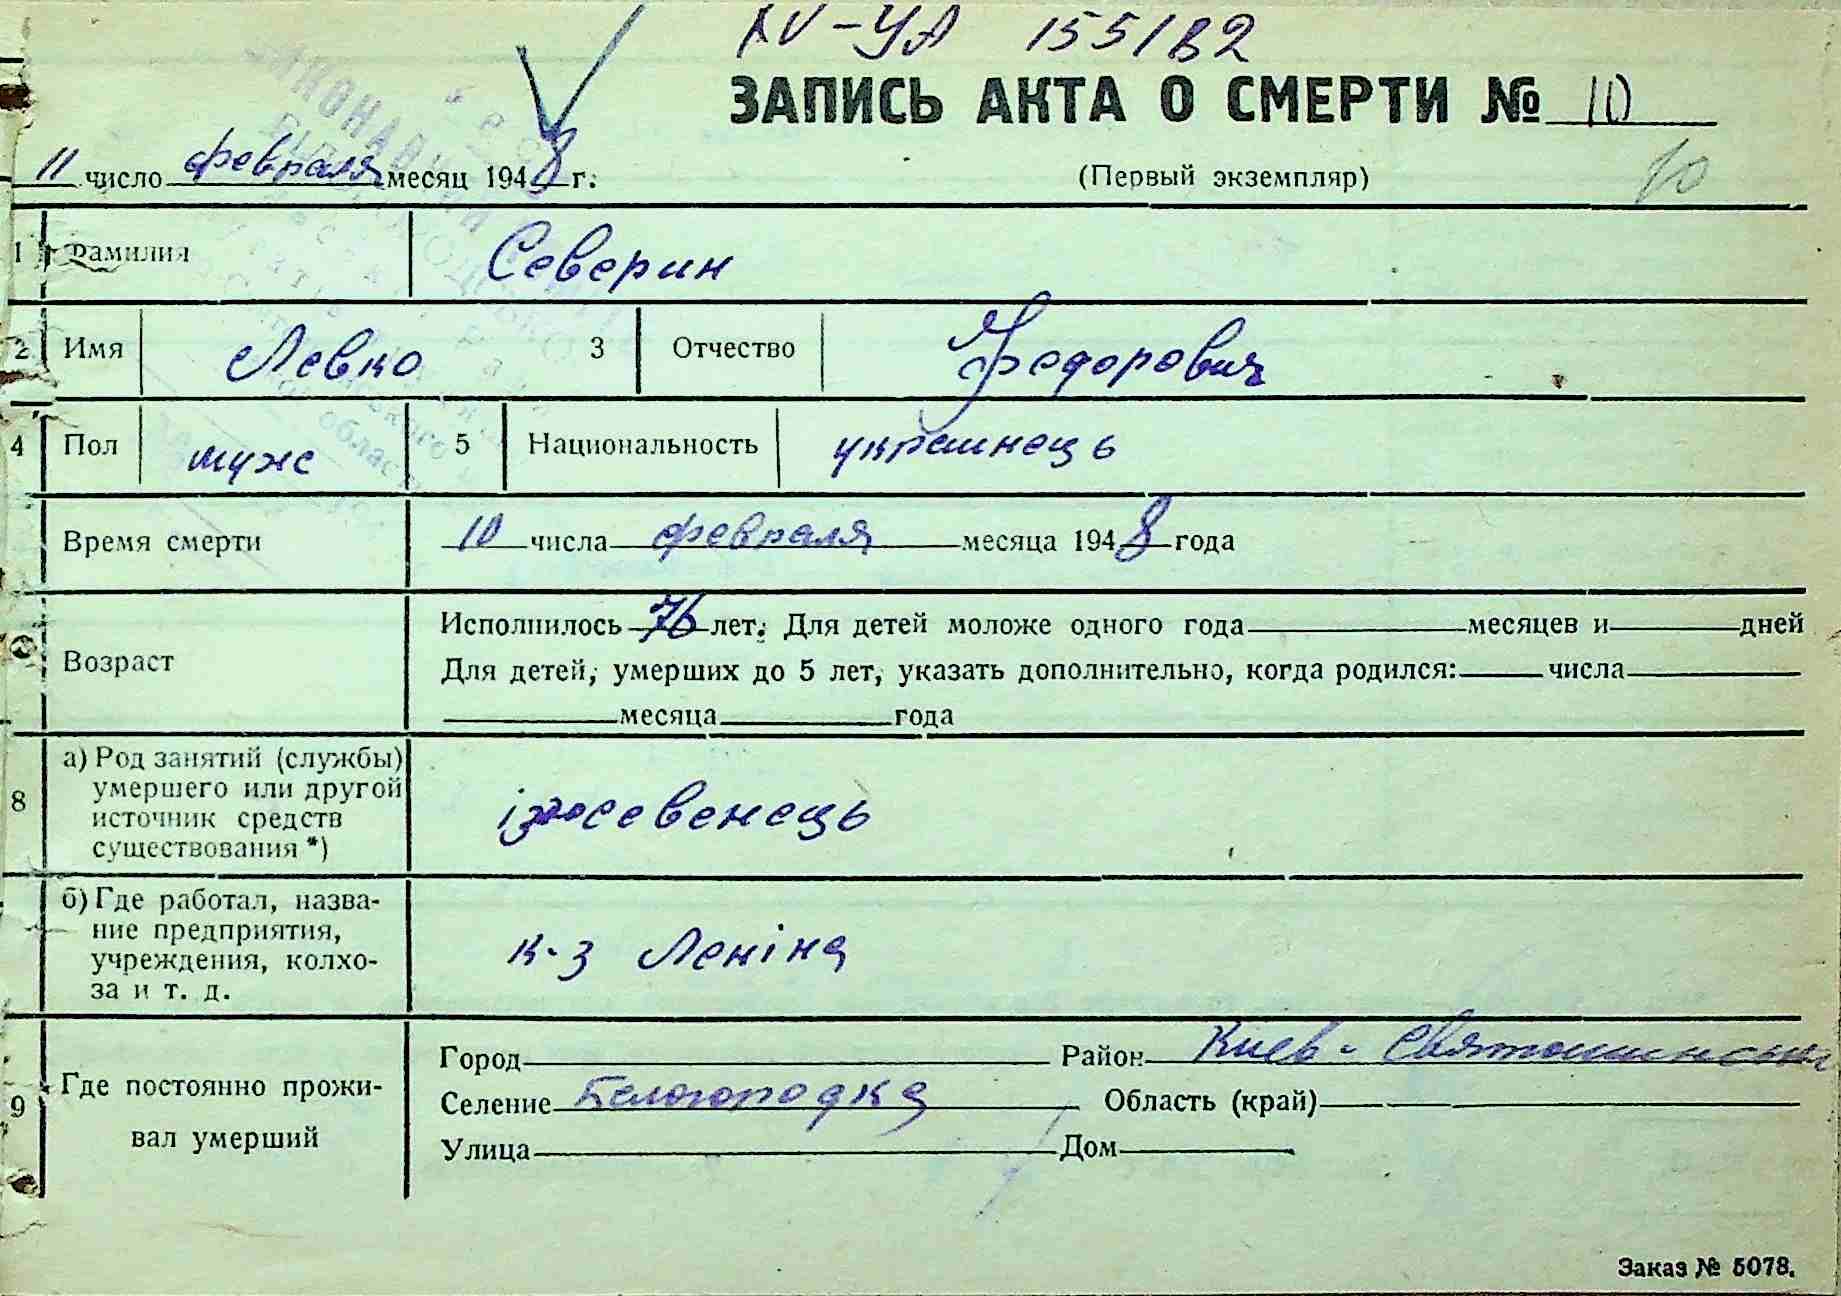 XV-УА 155182
ЗАПИСЬ АКТА О СМЕРТИ № 10
11 число февраля месяц 1948 г.
(Первый экземпляр) 10
1 Фамилия Северин
2 Имя Левко 3 Отчество Федорович
4 Пол муж 5 Национальность украинець
Время смерти 10 числа февраля месяца 1948 года
Исполнилось 76 лет. Для детей моложе одного года месяцев и дней
Возраст
Для детей, умерших до 5 лет, указать дополнительно, когда родился: числа
месяца года
8 а) Род занятий (службы)
умершего или другой
источник средств
существования *)
б) Где работал, назва-
ние предприятия,
учреждения, колхо-
за и т. д.
к-з Леніна
9 Где постоянно прожи-
вал умерший
Город Район Киев-Святошински
Селение Белогородка Область (край)
Улица Дом
Заказ № 5078.